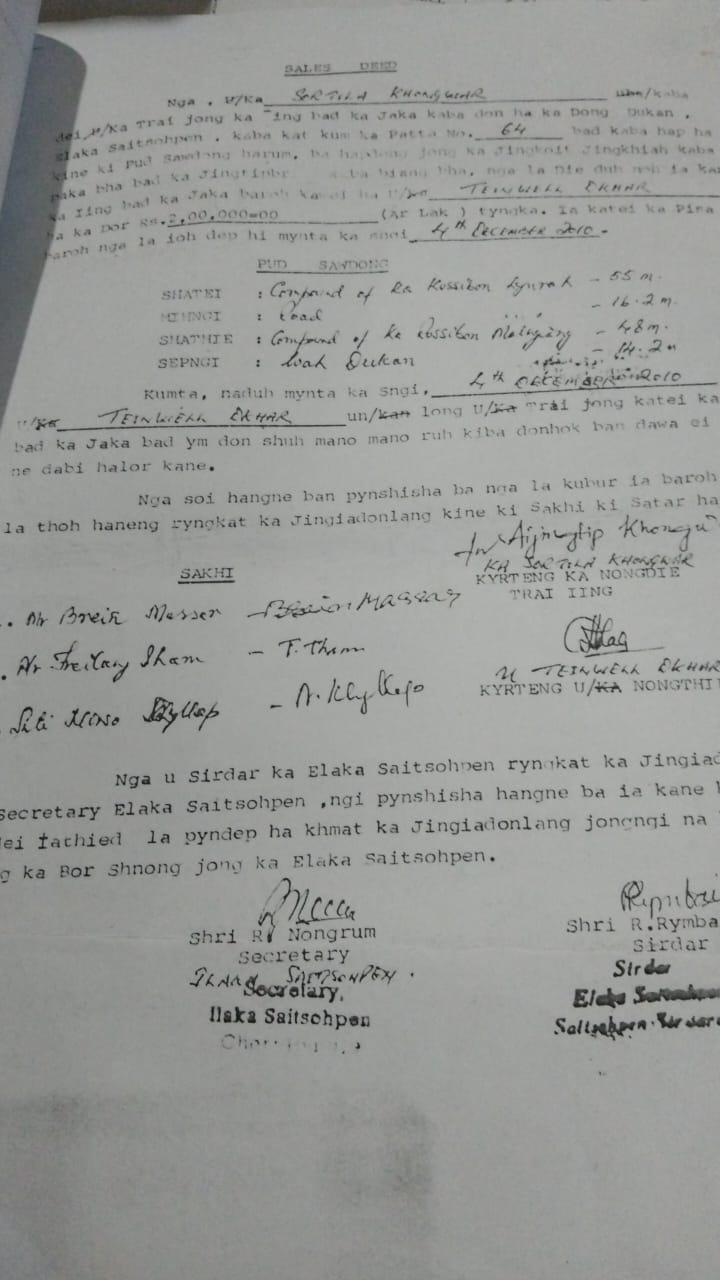 SALES DEED
Nga , U/Ka SORTILA KHONGWAR Uba/kaba
dei U/Ka Trai jong ka Iing bad ka Jaka kaba don ha ka Dong, Dukan ,
Elaka Saitsohpen , kaba kat kum ka Patta No. 64 bad kaba hap ha
kine ki Pud Sawdong harum, ba hapdeng jong ka Jingkoit Jingkhiah kaba
paka bha bad ka biang bha, nga la Die duh noh ia ka
ka Iing bad ka Jaka baroh katei ha U/Ka TEINWELL DKHAR
ha ka Dor Rs.2,00,000=00 (Ar Lak ) tyngka. Ia katei ka Pisa
baroh nga la ioh dep hi mynta ka sngi 4th DECEMBER 2010.
PUD SAWDONG
SHATEI : Compound of Ka Kossibon - 55 m.
MIHNGI : Road - 16.2 m.
SHATHIE : Compound of Ka - 48 m.
SEPNGI : Wah Dukan - 14.2 m
Kumta, naduh mynta ka Sngi, 4th DECEMBER 2010
U/Ka TEINWELL DKHAR un/kan long U/Ka Trai jong katei ka
bad ka Jaka bad ym don shuh mano mano ruh kiba donhok ban dawa ei
ne dabi halor kane.
Nga soi hangne ban pynshisha ba nga la kubur ia baroh
la thoh haneng ryngkat ka Jingiadonlang kine ki Sakhi ki Satar ha
KA SORTILA KHONGWAR
SAKHI KYRTENG KA NONGDIE
TRAI IING
Mr
Mr - T. Tham
U TEINWELL DKHAR
KYRTENG U/KA NONGTHI
Nga u Sirdar ka Elaka Saitsohpen ryngkat ka Jingiad
Secretary Elaka Saitsohpen ,ngi pynshisha hangne ba ia kane k
dei Iathied la pyndep ha khmat ka Jingiadonlang jongngi na
g ka Bor Shnong jong ka Elaka Saitsohpen.
Shri R. Nongrum
Secretary
SAITSOHPEN.
Secretary,
Ilaka Saitsohpen
Shri R.Rymba
Sirdar
Sirdar
Elaka